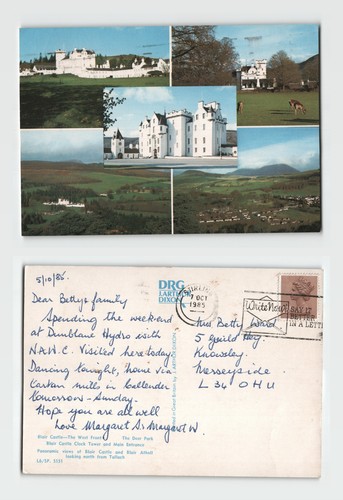 5/10/85.
Dear Betty & family
Spending the weekend
at Dunblane Hydro with
N.A.W.C. Visited here today.
Dancing tonight, home via
mills in Callender
tomorrow - Sunday.
Hope you are all well
Love Margaret S. & Margaret W.
Blair Castle—The West Front The Deer Park
Blair Castle, Clock Tower and Main Entrance
Panoramic views of Blair Castle and Blair Atholl
looking north from Tulloch
LA/SP. 5157
DRG
LARTHUR
DIXON
7 OCT
1985
Write Now SAY IT
BETTER
IN A LETTER
Mrs Betty Ward
5
Knowsley
Merseyside
L34 0HU